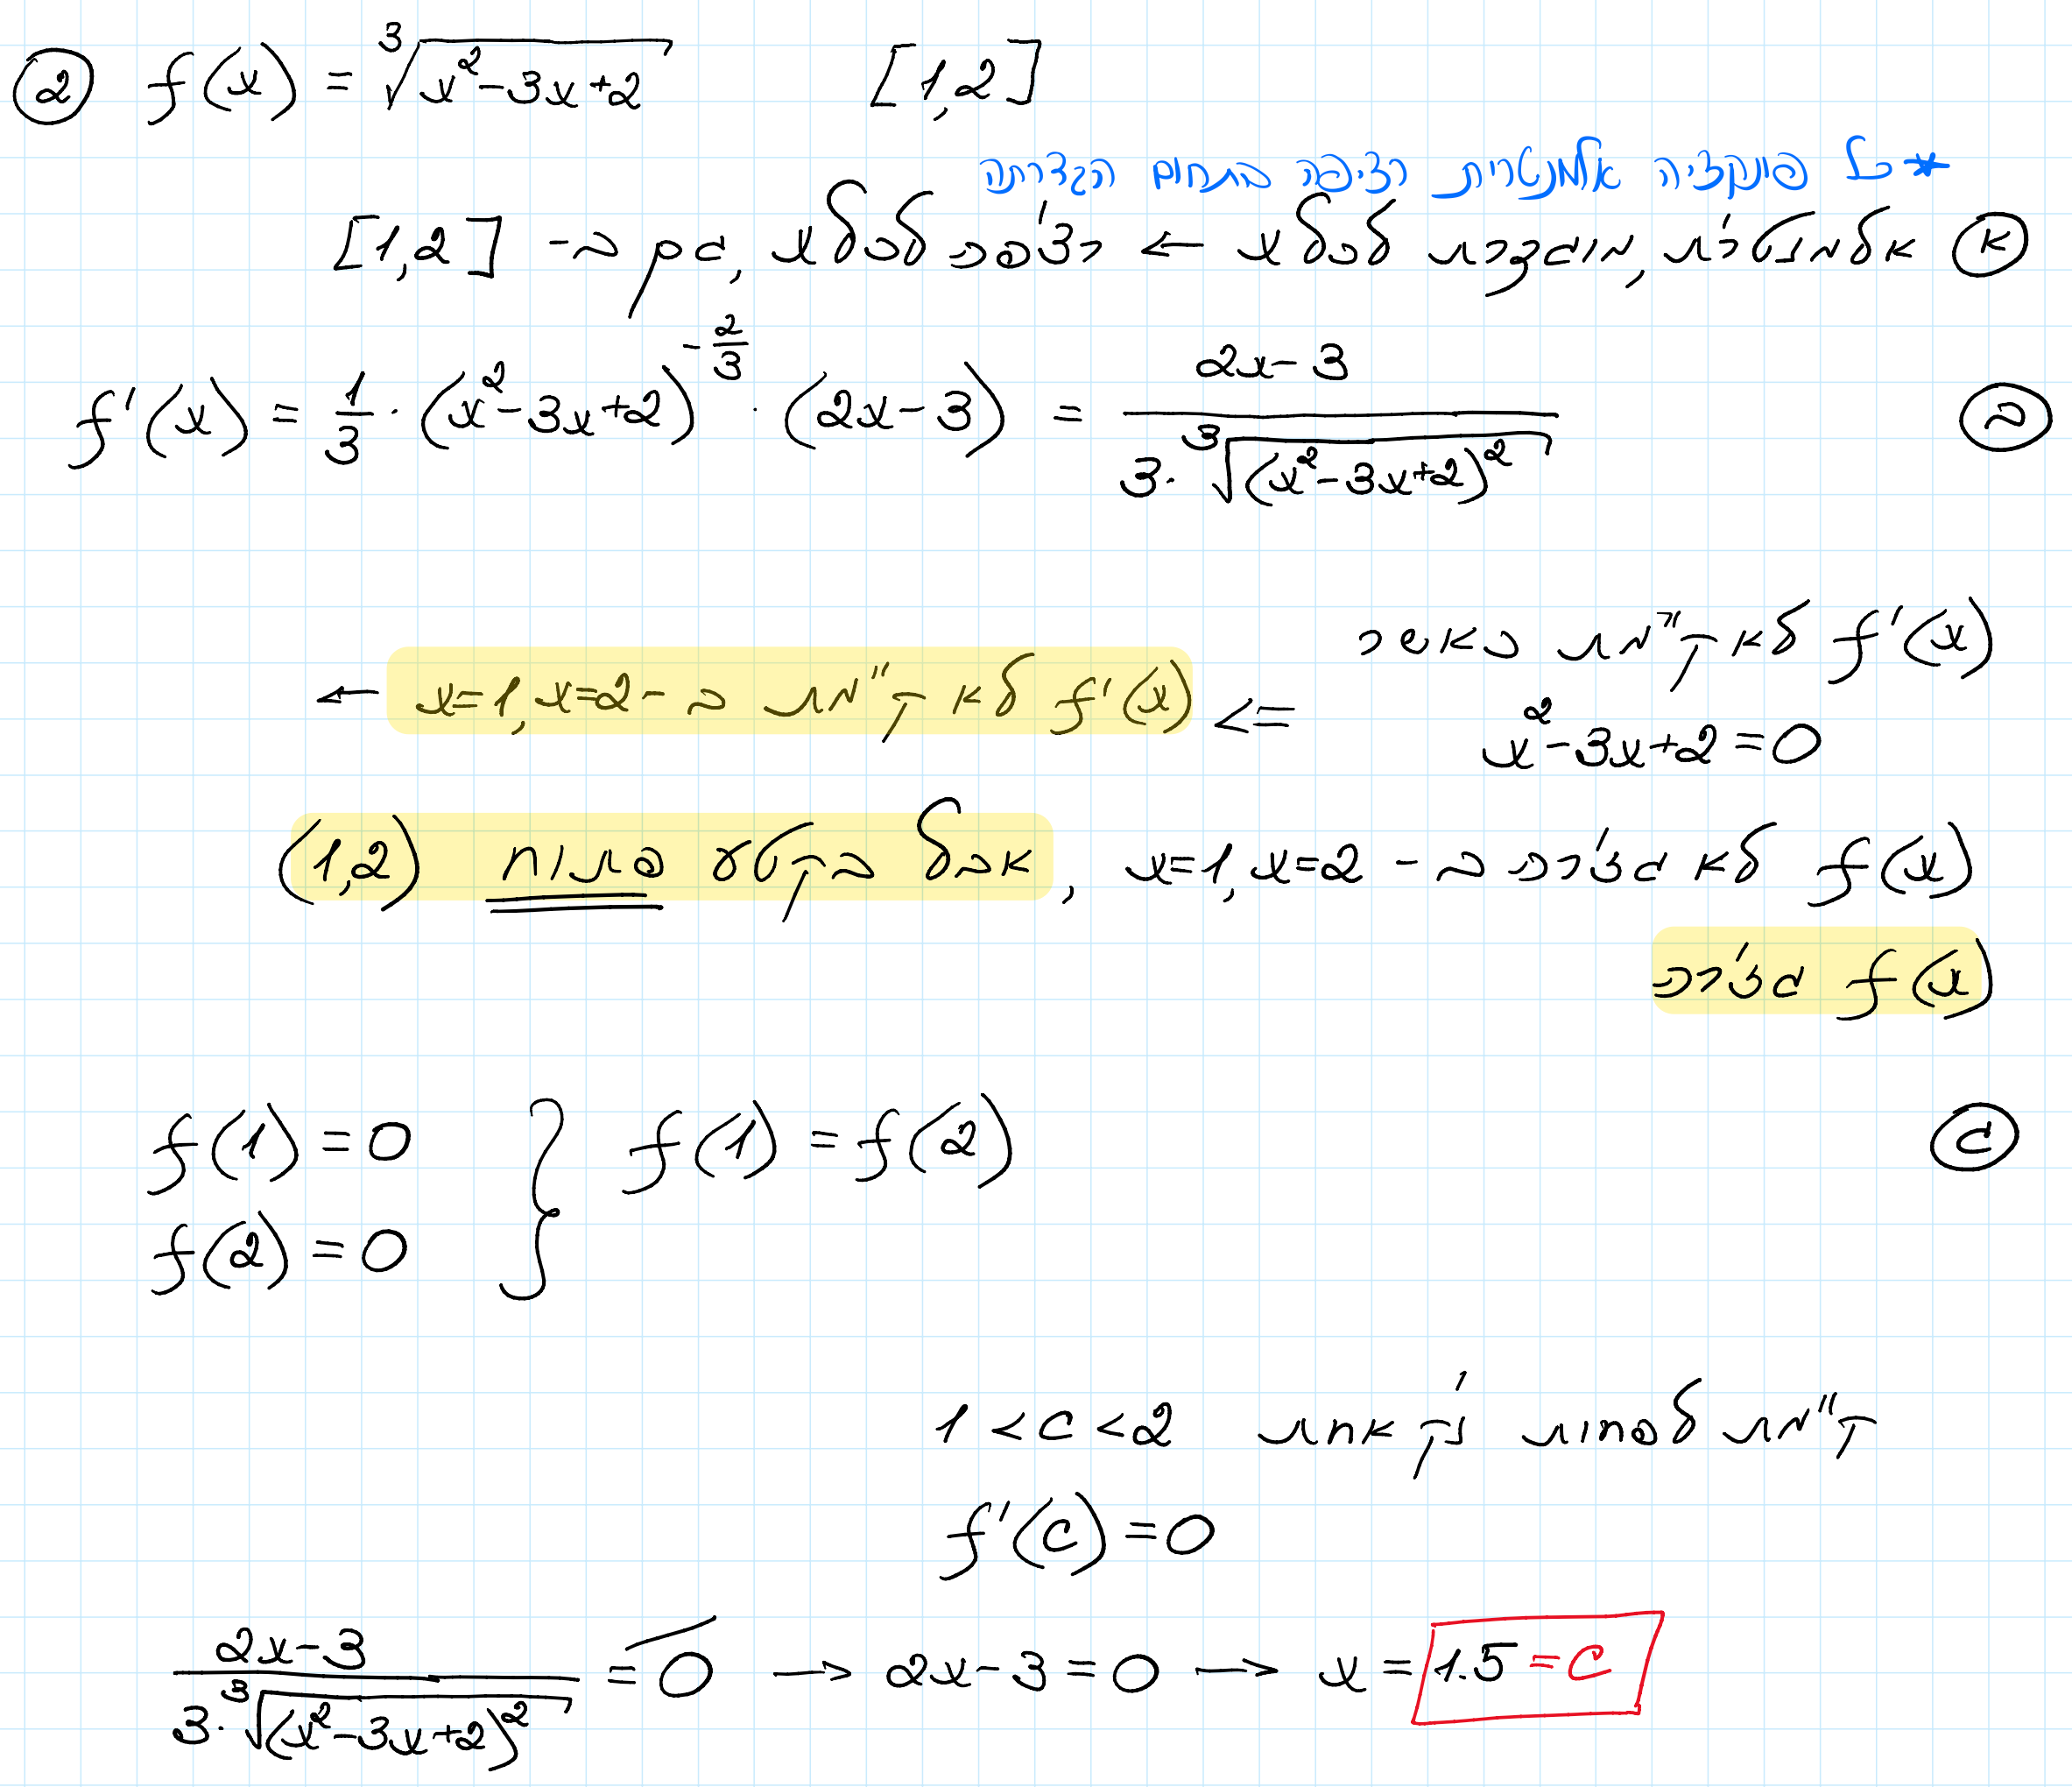 ② f(x) = ∛(x²-3x+2) [1,2]
* כל פונקציה אלמנטרית רציפה בתחום הגדרתה
א אלמנטרית, מוגדרת לכל x ← רציפה לכל x, גם ב- [1,2]
ב f'(x) = 1/3 · (x²-3x+2)^(-2/3) · (2x-3) = (2x-3) / (3·∛((x²-3x+2)²))
f'(x) לא קיימת כאשר
x²-3x+2=0 <= f'(x) לא קיימת ב- x=1, x=2 ←
f(x) לא גזירה ב- x=1, x=2, אבל בקטע פתוח (1,2)
f(x) גזירה
ג f(1)=0 } f(1)=f(2)
f(2)=0
קיימת לפחות נק' אחת 1<c<2
f'(c)=0
(2x-3) / (3·∛((x²-3x+2)²)) = 0 → 2x-3=0 → x=1.5=c